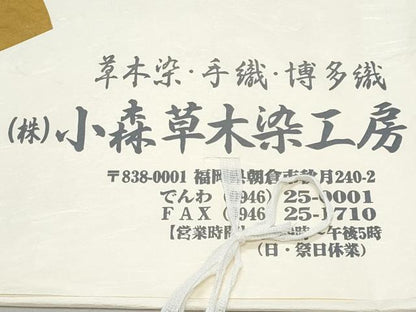 草木染・手織・博多織
(株)小森草木染工房
〒838-0001 福岡県朝倉市 月240-2
でんわ 0946) 25-0001
FAX 0946) 25-1710
【営業時間 時～午後5時
(日・祭日休業)